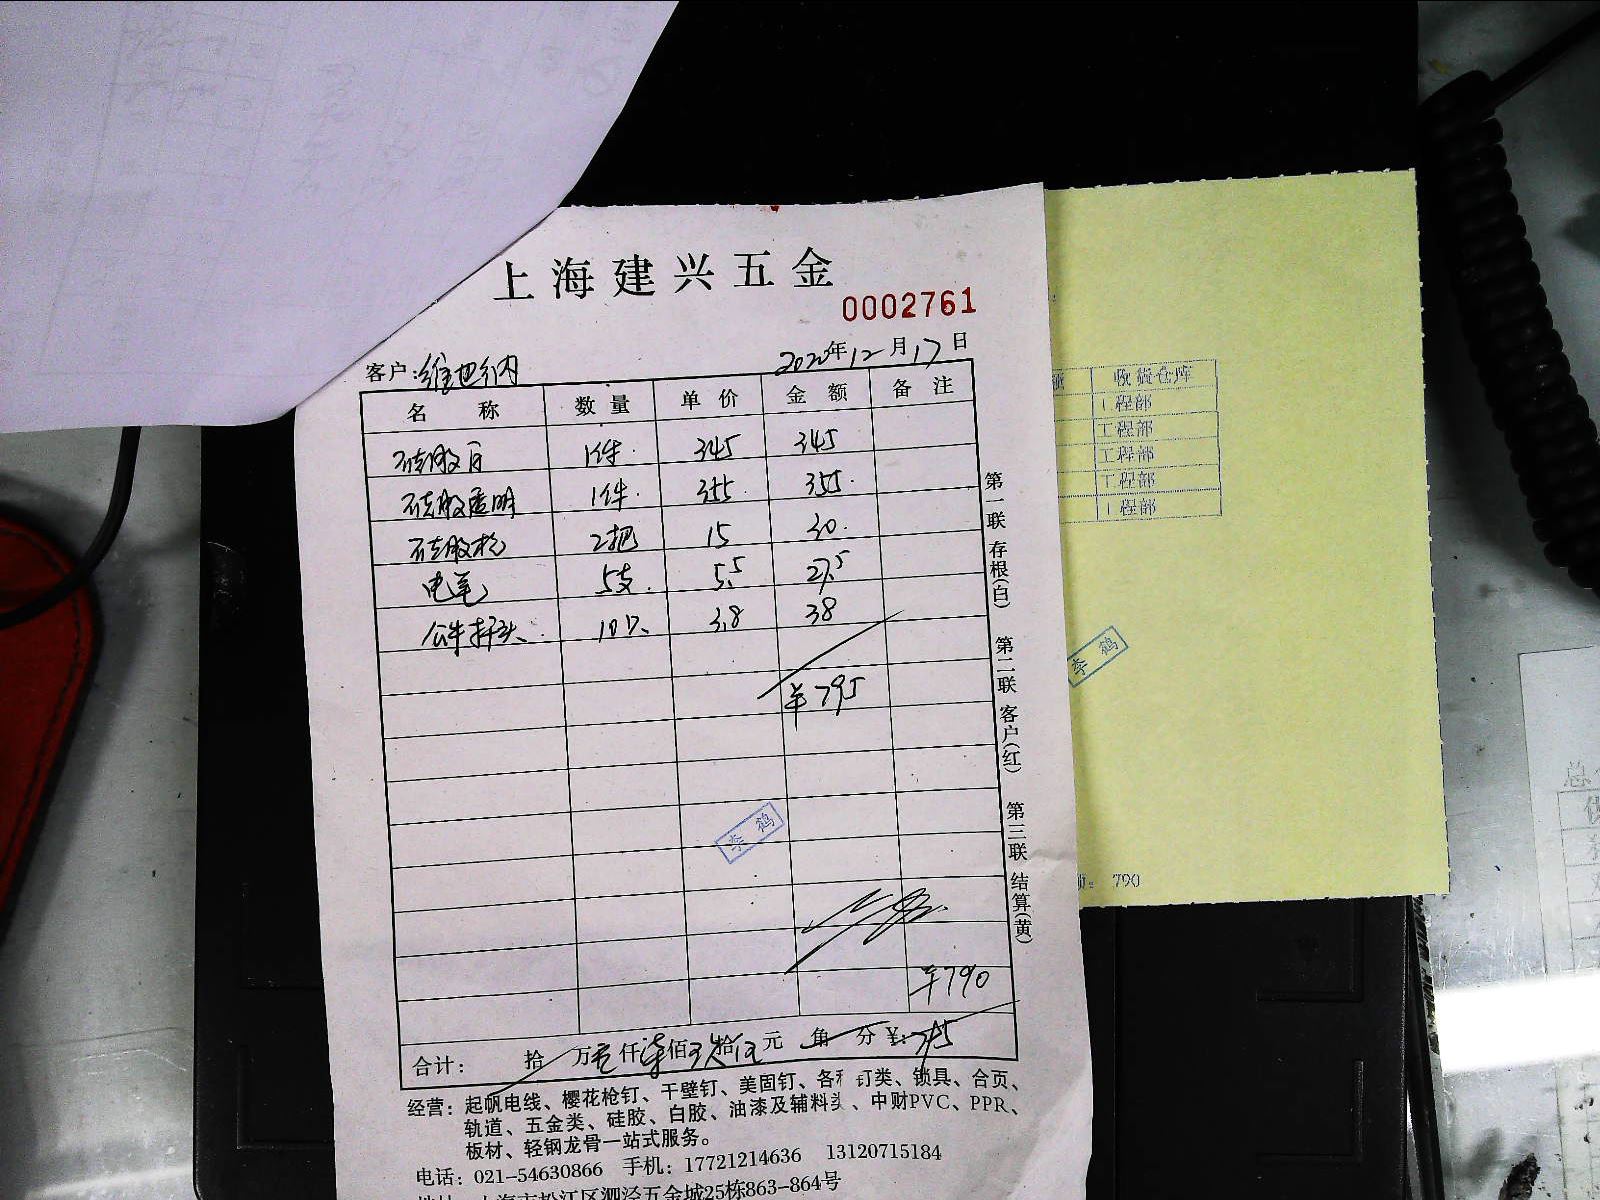 上海建兴五金
0002761
客户:维也纳 2020年12月17日
名称 数量 单价 金额 备注
硅胶白 1件. 345 345
硅胶透明 1件. 355 355.
硅胶枪 2把 15 30.
电笔 5支. 5.5 27.5
公牛插头. 10只. 3.8 38
¥795
李鹤
¥790
合计: 拾 万 仟柒佰玖拾伍元 角 分¥:795
第一联 存根(白) 第二联 客户(红) 第三联 结算(黄)
经营:起帆电线、樱花枪钉、干壁钉、美固钉、各 钉类、锁具、合页、
轨道、五金类、硅胶、白胶、油漆及辅料 、中财PVC、PPR、
板材、轻钢龙骨一站式服务。
电话:021-54630866 手机:17721214636 13120715184
上海市松江区泗泾五金城25栋863-864号
收货仓库
工程部
工程部
工程部
工程部
工程部
李鹤
790